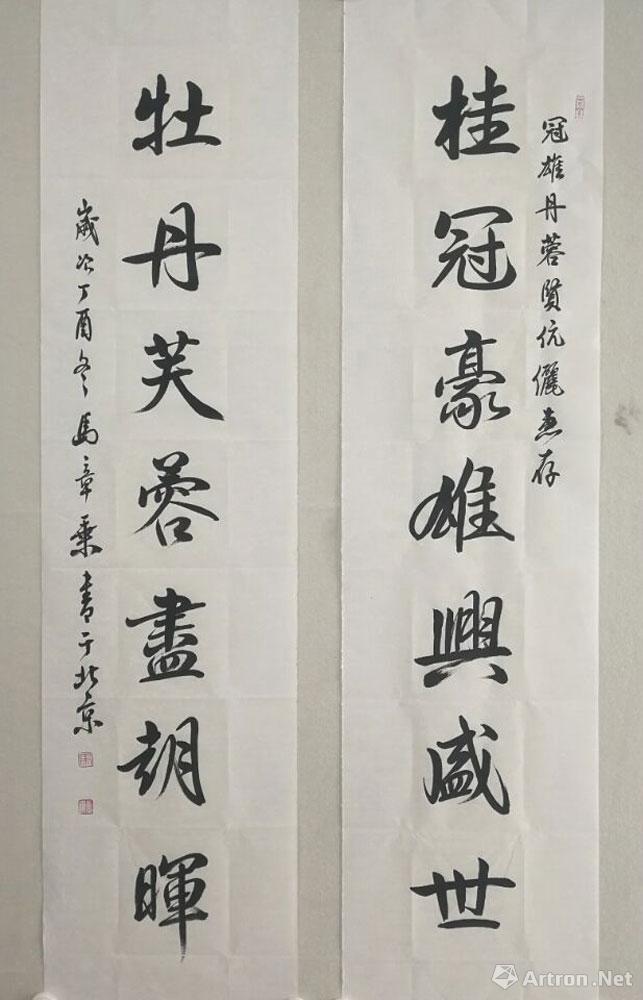 冠雄丹蓉贤伉儷惠存
桂冠豪雄興盛世
牡丹芙蓉盡朝暉
歲次丁酉冬馬章乘書于北京
Artron.Net